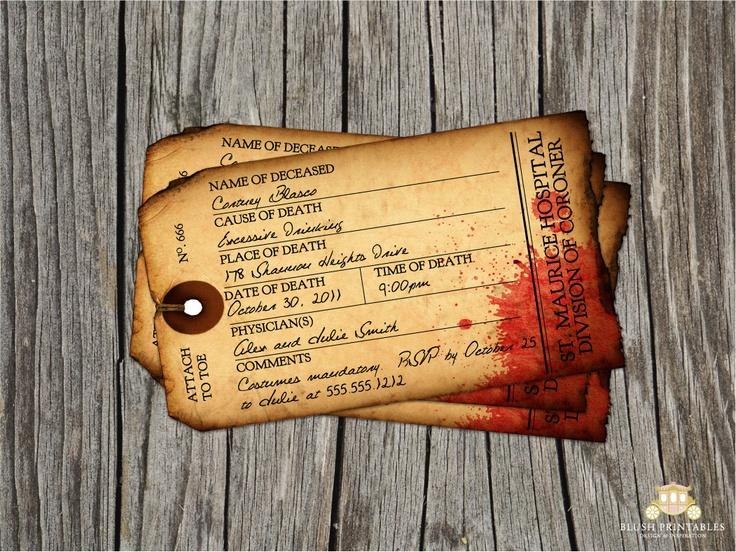 NAME OF DECEASED
NAME OF DECEASED
Cortney Blasco
CAUSE OF DEATH
Excessive Drinking
PLACE OF DEATH
178 Shannon Heights Drive
DATE OF DEATH
October 30, 2011
TIME OF DEATH
9:00pm
PHYSICIAN(S)
Alex and Julie Smith
COMMENTS
Costumes mandatory. RSVP by October 25
to Julie at 555.555.1212
No. 666
ATTACH
TO TOE
ST. MAURICE HOSPITAL
DIVISION OF CORONER
BLUSH PRINTABLES
DESIGN & INSPIRATION